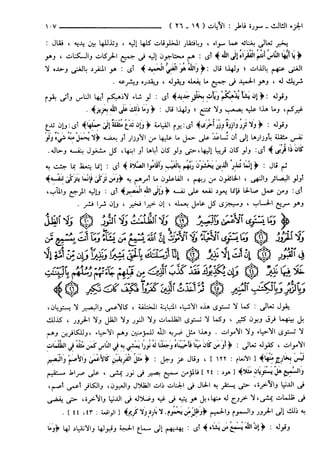 الجزء الثالث - سورة فاطر : الآيات ( ١٩ ـ ٢٦ )
١٠٧
يخبر تعالى بغنائه عما سواه ، وبافتقار المخلوقات كلها إليه ، وتذللها بين يديه ، فقال :
﴿ يَا أَيُّهَا النَّاسُ أَنتُمُ الْفُقَرَاءُ إِلَى اللَّهِ ﴾ أى : هم محتاجون إليه فى جميع الحركات والسكنات ، وهو
الغنى عنهم بالذات ؛ ولهذا قال : ﴿ وَاللَّهُ هُوَ الْغَنِيُّ الْحَمِيدُ ﴾ أى : هو المنفرد بالغنى وحده لا
شريك له ، وهو الحميد فى جميع ما يفعله ويقوله ، ويقدره ويشرعه .
وقوله : ﴿ إِن يَشَأْ يُذْهِبْكُمْ وَيَأْتِ بِخَلْقٍ جَدِيدٍ ﴾ أى : لو شاء لأذهبكم أيها الناس وأتى بقوم
غيركم، وما هذا عليه بصعب ولا ممتنع ؛ ولهذا قال : ﴿ وَمَا ذَلِكَ عَلَى اللَّهِ بِعَزِيزٍ ﴾.
وقوله : ﴿ وَلَا تَزِرُ وَازِرَةٌ وِزْرَ أُخْرَى ﴾ أى: يوم القيامة ﴿ وَإِن تَدْعُ مُثْقَلَةٌ إِلَى حِمْلِهَا ﴾ أى: وإن تدع
نفس مثقلة بأوزارها إلى أن تُسَاعَدَ على حمل ما عليها من الأوزار أو بعضه ﴿ لَا يُحْمَلْ مِنْهُ شَيْءٌ وَلَوْ
كَانَ ذَا قُرْبَى ﴾ أى: ولو كان قريبا إليها،حتى ولو كان أباها أو ابنها، كل مشغول بنفسه وحاله.
ثم قال : ﴿ إِنَّمَا تُنذِرُ الَّذِينَ يَخْشَوْنَ رَبَّهُم بِالْغَيْبِ وَأَقَامُوا الصَّلَاةَ ﴾ أى : إنما يتعظ بما جئت به
أولو البصائر والنهى ، الخائفون من ربهم ، الفاعلون ما أمرهم به ﴿ وَمَن تَزَكَّى فَإِنَّمَا يَتَزَكَّى لِنَفْسِهِ ﴾
أى: ومن عمل صالحا فإنما يعود نفعه على نفسه ﴿ وَإِلَى اللَّهِ الْمَصِيرُ ﴾ أى : وإليه المرجع والمآب،
وهو سريع الحساب ، وسيجزى كل عامل بعمله ، إن خيرا فخير ، وإن شرا فشر .
﴿ وَمَا يَسْتَوِي الْأَعْمَى وَالْبَصِيرُ ۝ وَلَا الظُّلُمَاتُ وَلَا النُّورُ ۝ وَلَا الظِّلُّ وَلَا الْحَرُورُ ۝
وَمَا يَسْتَوِي الْأَحْيَاءُ وَلَا الْأَمْوَاتُ إِنَّ اللَّهَ يُسْمِعُ مَن يَشَاءُ وَمَا أَنتَ بِمُسْمِعٍ مَّن
فِي الْقُبُورِ ۝ إِنْ أَنتَ إِلَّا نَذِيرٌ ۝ إِنَّا أَرْسَلْنَاكَ بِالْحَقِّ بَشِيرًا وَنَذِيرًا وَإِن مِّنْ أُمَّةٍ إِلَّا
خَلَا فِيهَا نَذِيرٌ ۝ وَإِن يُكَذِّبُوكَ فَقَدْ كَذَّبَ الَّذِينَ مِن قَبْلِهِمْ جَاءَتْهُمْ رُسُلُهُم بِالْبَيِّنَاتِ
وَبِالزُّبُرِ وَبِالْكِتَابِ الْمُنِيرِ ۝ ثُمَّ أَخَذْتُ الَّذِينَ كَفَرُوا فَكَيْفَ كَانَ نَكِيرِ ۝ ﴾
يقول تعالى : كما لا تستوى هذه الأشياء المتباينة المختلفة ، كالأعمى والبصير لا يستويان،
بل بينهما فرق وبون كثير ، وكما لا تستوى الظلمات ولا النور ولا الظل ولا الحرور ، كذلك
لا تستوى الأحياء ولا الأموات . وهذا مثل ضربه اللَّه للمؤمنين وهم الأحياء، وللكافرين وهم
الأموات ، كقوله تعالى : ﴿ أَوَ مَن كَانَ مَيْتًا فَأَحْيَيْنَاهُ وَجَعَلْنَا لَهُ نُورًا يَمْشِي بِهِ فِي النَّاسِ كَمَن مَّثَلُهُ فِي الظُّلُمَاتِ
لَيْسَ بِخَارِجٍ مِّنْهَا ﴾ [ الأنعام : ١٢٢ ] ، وقال عز وجل : ﴿ مَثَلُ الْفَرِيقَيْنِ كَالْأَعْمَى وَالْأَصَمِّ وَالْبَصِيرِ
وَالسَّمِيعِ هَلْ يَسْتَوِيَانِ مَثَلًا ﴾ [هود : ٢٤] فالمؤمن سميع بصير فى نور يمشى ، على صراط مستقيم
فى الدنيا والآخرة، حتى يستقر به الحال فى الجنات ذات الظلال والعيون، والكافر أعمى أصم،
فى ظلمات يمشى، لا خروج له منها، بل هو يتيه فى غيه وضلاله فى الدنيا والآخرة، حتى يفضى
به ذلك إلى الحرور والسموم والحميم ﴿ وَظِلٍّ مِّن يَحْمُومٍ . لَا بَارِدٍ وَلَا كَرِيمٍ ﴾ [ الواقعة : ٤٣ ، ٤٤ ] .
وقوله : ﴿ إِنَّ اللَّهَ يُسْمِعُ مَن يَشَاءُ ﴾ أى : يهديهم إلى سماع الحجة وقبولها والانقياد لها ﴿ وَمَا